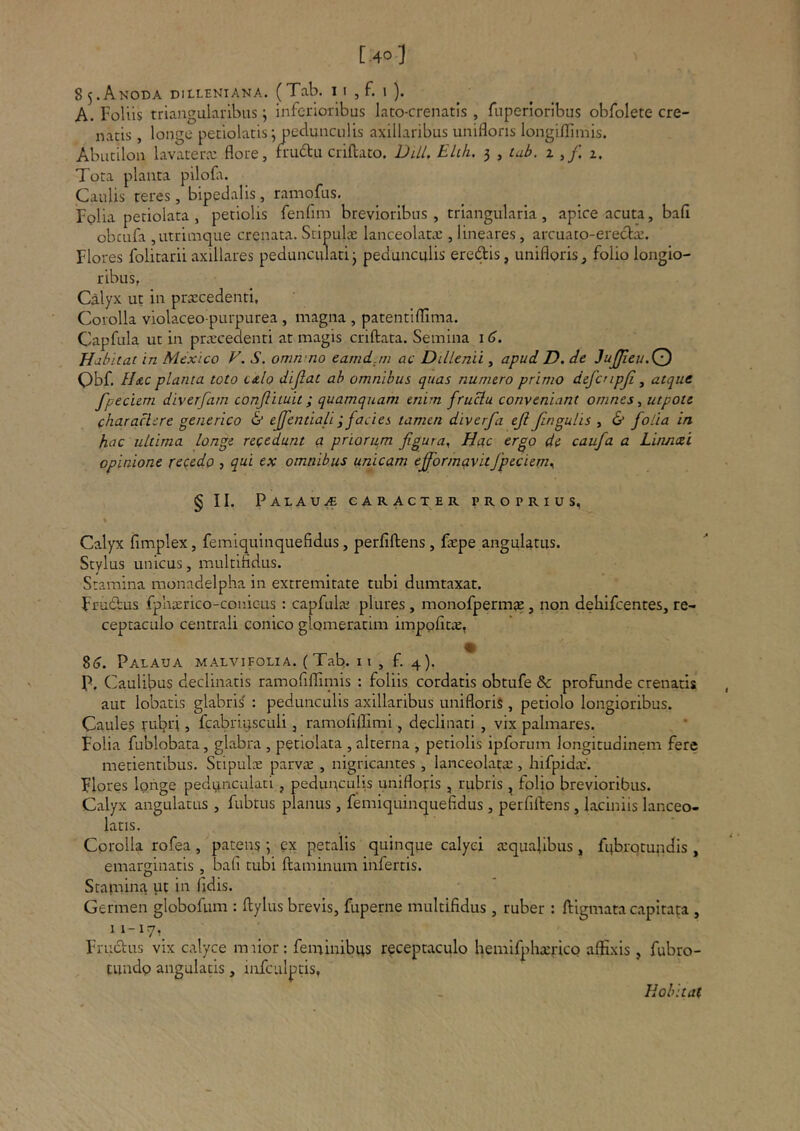 [40]
85. ANODA DILLENIANA. (Tab. 11, f. 1).
A. Foliis triangularibus; inferioribus lato-crenatis, ſuperioribus obſolete cre-
natis, longe petiolatis; pedunculis axillaribus unifloris longiſſimis.
Abutilon lavateræ flore, fructu criſtato. Dill. Elth. 3, tab. 2, f. 2.
Tota planta piloſa.
Caulis teres, bipedalis, ramoſus.
Folia petiolata, petiolis ſenſim brevioribus, triangularia, apice acuta, baſi
obtuſa, utrimque crenata. Stipulæ lanceolatæ, lineares, arcuato-erectæ.
Flores ſolitarii axillares pedunculati; pedunculis erectis, unifloris, folio longio-
ribus.
Calyx ut in præcedenti.
Corolla violaceo-purpurea, magna, patentiſſima.
Capſula ut in præcedenti at magis criſtata. Semina 16.
Habitat in Mexico V. S. omnino eamdem ac Dillenii, apud D. de Juſſieu. ☉
Obſ. Hæc planta toto cælo diſtat ab omnibus quas numero primo deſcripſi, atque
ſpeciem diverſam conſtituit; quamquam enim fructu conveniant omnes, utpote
charactere generico & eſſentiali; facies tamen diverſa eſt ſingulis, & folia in
hac ultima longe recedunt a priorum figura. Hac ergo de cauſa a Linnæi
opinione recedo, qui ex omnibus unicam efformavit ſpeciem.
§ II. PALAUÆ CARACTER PROPRIUS.
Calyx ſimplex, ſemiquinquefidus, perſiſtens, ſæpe angulatus.
Stylus unicus, multifidus.
Stamina monadelpha in extremitate tubi dumtaxat.
Fructus ſphærico-conicus : capſulæ plures, monoſpermæ, non dehiſcentes, re-
ceptaculo centrali conico glomeratim impoſitæ.
86. PALAUA MALVIFOLIA. (Tab. 11, f. 4).
P. Caulibus declinatis ramoſiſſimis : foliis cordatis obtuſe & profunde crenatis
aut lobatis glabris : pedunculis axillaribus unifloris, petiolo longioribus.
Caules rubri, ſcabriuſculi, ramoſiſſimi, declinati, vix palmares.
Folia ſublobata, glabra, petiolata, alterna, petiolis ipſorum longitudinem fere
metientibus. Stipulæ parvæ, nigricantes, lanceolatæ, hiſpidæ.
Flores longe pedunculati, pedunculis unifloris, rubris, folio brevioribus.
Calyx angulatus, ſubtus planus, ſemiquinquefidus, perſiſtens, laciniis lanceo-
latis.
Corolla roſea, patens; ex petalis quinque calyci æqualibus, ſubrotundis,
emarginatis, baſi tubi ſtaminum inſertis.
Stamina ut in ſidis.
Germen globoſum : ſtylus brevis, ſuperne multifidus, ruber : ſtigmata capitata,
11-17.
Fructus vix calyce major : ſeminibus receptaculo hemiſphærico affixis, ſubro-
tundo angulatis, inſculptis.
Habitat